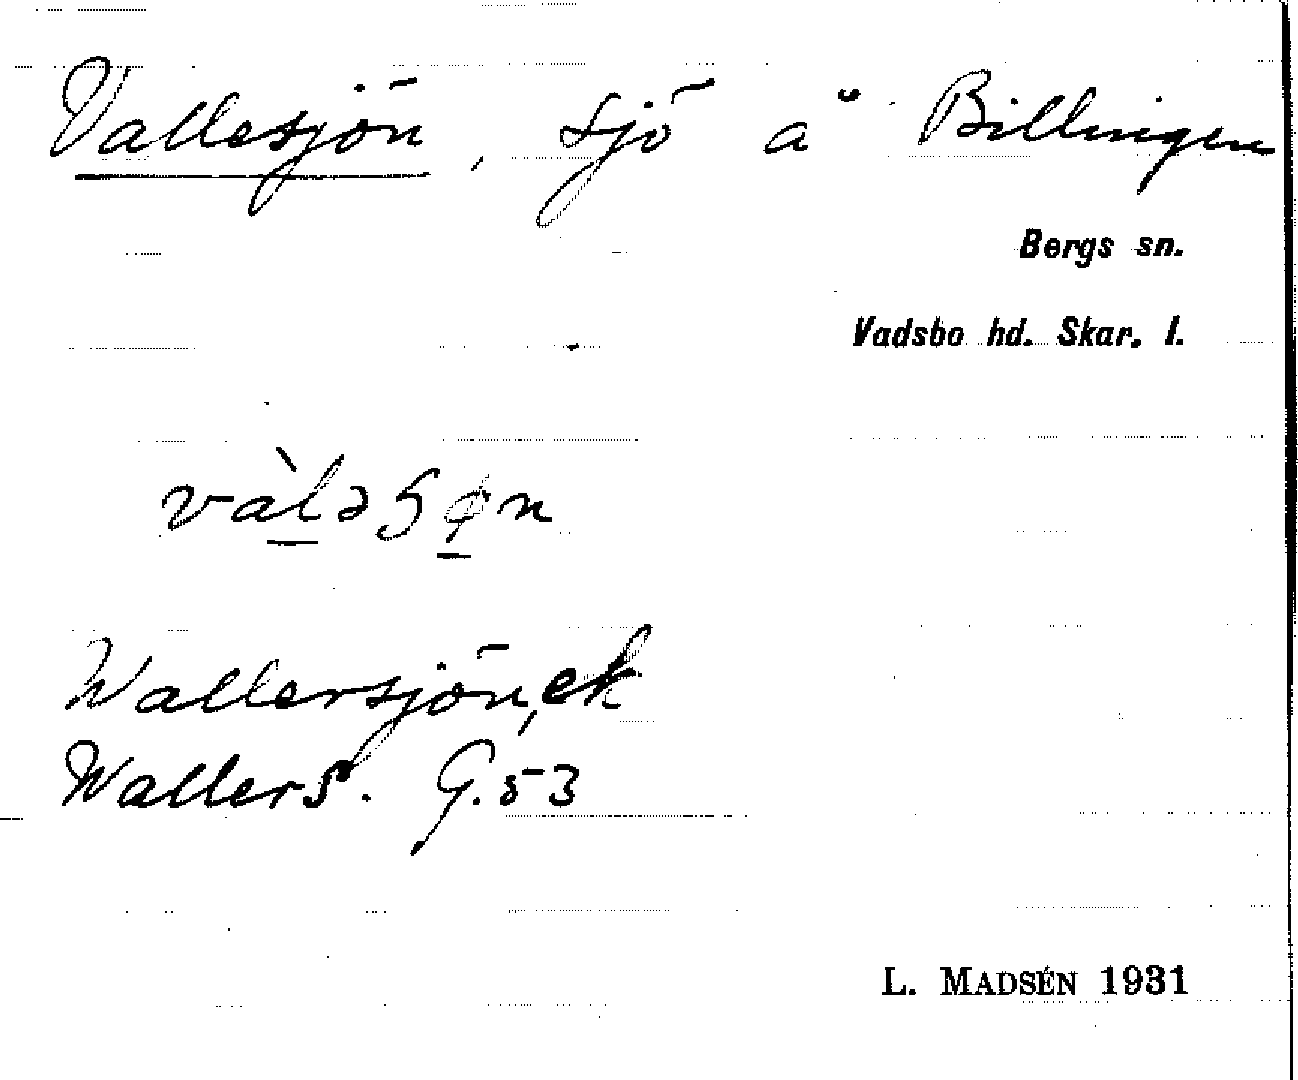 Vallesjön, sjö å Billingen
Bergs sn.
Vadsbo hd. Skar. l.
vàləSøn
Wallersjön, ek
Wallers. G. 53
L. MADSÉN 1931